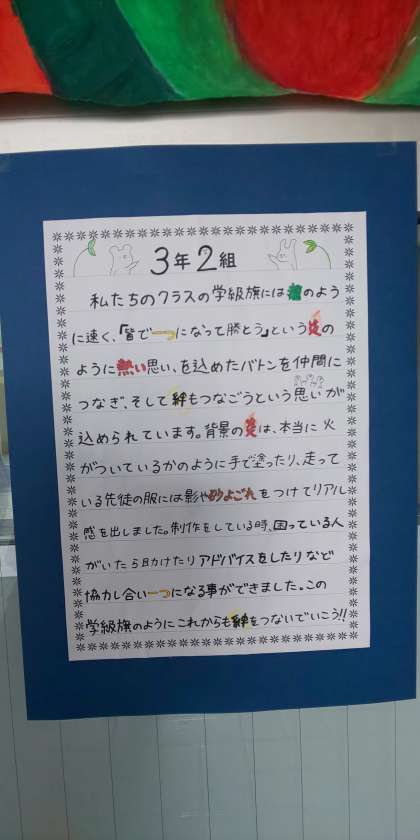 3年2組
私たちのクラスの学級旗には のよう
に速く、「皆で一つになって勝とう」という炎の
ように熱い思い、を込めたバトンを仲間に
つなぎ、そして絆もつなごうという思いが
込められています。背景の炎は、本当に火
がついているかのように手で塗ったり、走って
いる先徒の服には影や砂よごれをつけてリアル
感を出しました。制作をしている時、困っている人
がいたら助けたりアドバイスをしたりなど
協力し合い一つになる事ができました。この
学級旗のようにこれからも絆をつないでいこう!!